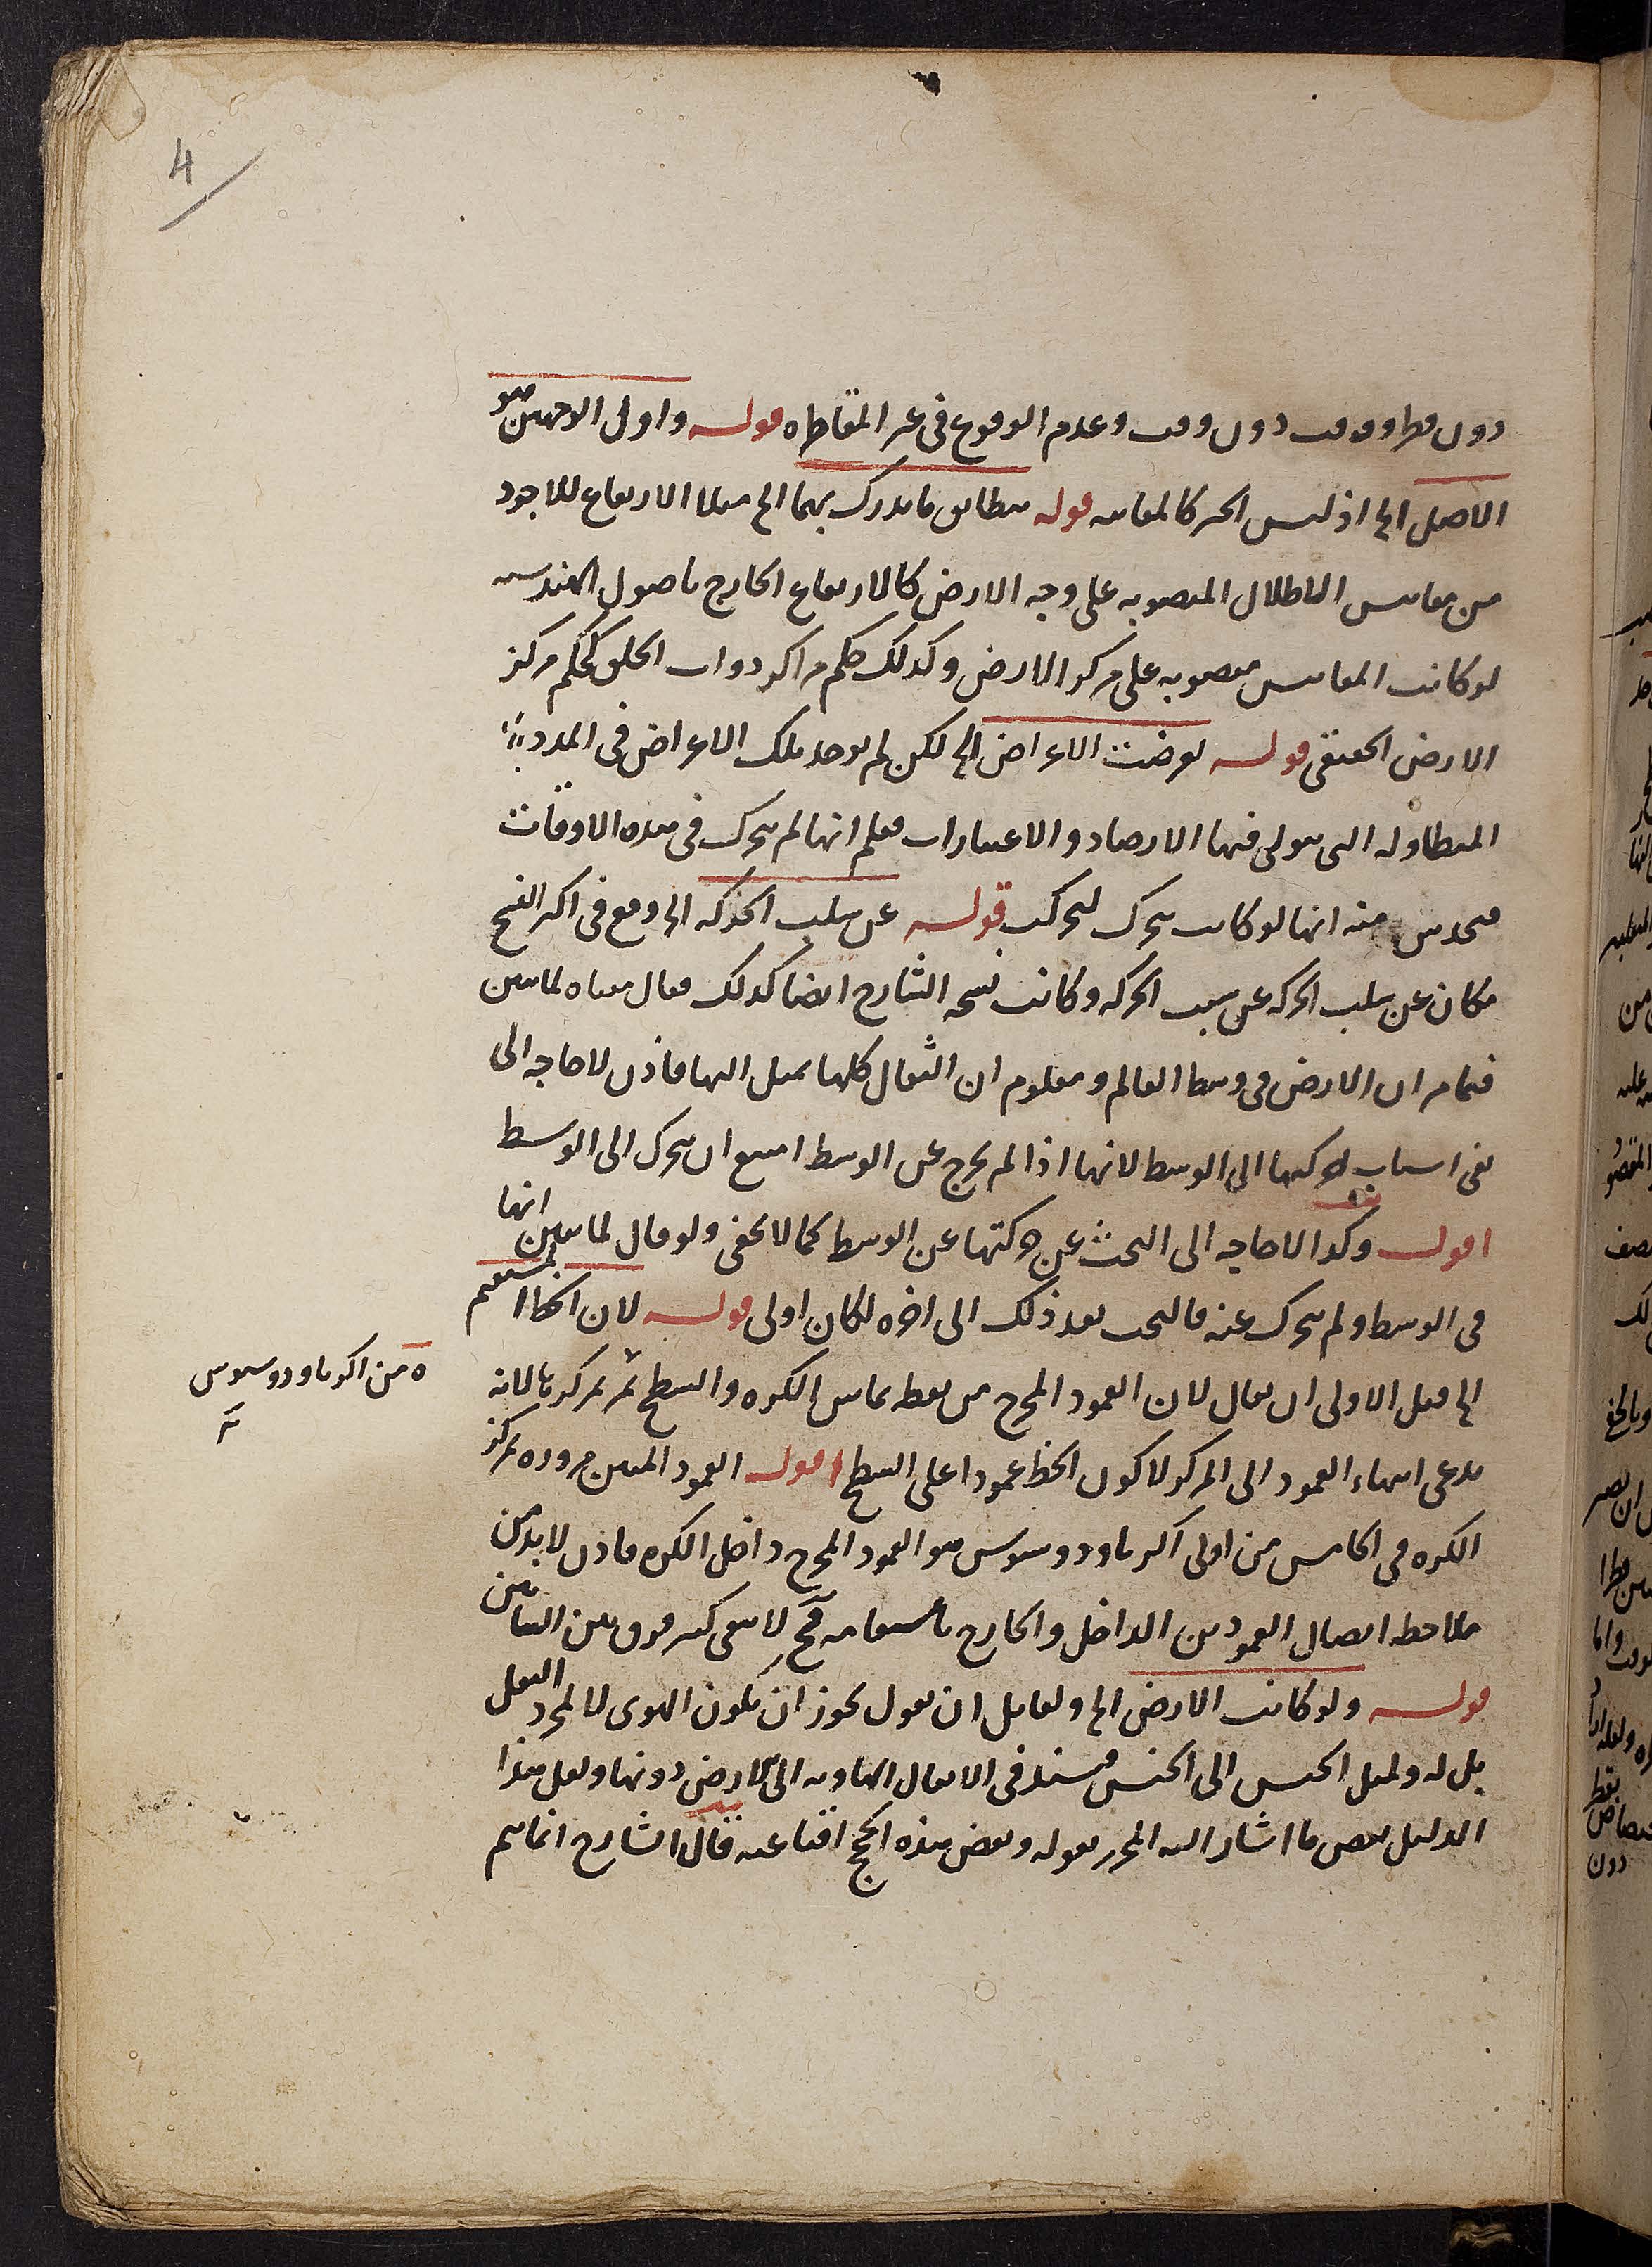 4
دون قطر او وقت دون وقت وعدم الوقوع في غير المقاطره قوله واولى الوجهين هو
الاصل الخ اذ ليس الحس كالمعاينه قوله يطابق ما يدرك بهما الخ مثلا الارتفاع الماخوذ
من مقاييس الاظلال المنصوبه على وجه الارض كالارتفاع الخارج باصول الهندسه
لو كانت المقاييس منصوبه على مركز الارض وكذلك حكم مراكز دوات الحلق كحكم مركز
الارض الحقيقي قوله لعرضت الاعراض الخ لكن لم يوجد تلك الاعراض في المدد
المتطاوله التي تتولى فيها الارصاد والاعتبارات فعلم انها لم تتحرك في هذه الاوقات
فيحدس منه انها لو كانت تتحرك لتحركت قوله عن سلب الحركه الخ وقع في اكثر النسخ
مكان عن سلب الحركه عن سبب الحركه وكانت نسخه الشارح ايضا كذلك فقال معناه لما تبين
فيما مر ان الارض في وسط العالم ومعلوم ان الثقال كلها تميل اليها فاذن لا حاجه الى
نفي اسباب حركتها الى الوسط لانها اذا لم تخرج عن الوسط امتنع ان تتحرك الى الوسط
اقول وكذا لا حاجه الى البحث عن حركتها عن الوسط كما لا يخفى ولو قال لما تبين انها
في الوسط ولم تتحرك عنه فالبحث بعد ذلك الى اخره لكان اولى قوله لان الخط المستقيم
الخ قيل الاولى ان يقال لان العمود المخرج من نقطه تماس الكره والسطح يمر بمركزها لانه
يدعي انتهاء العمود الى المركز لا كون الخط عمودا على السطح اقول العمود المبين مروره بمركز
الكره في الخامس من اولى اكر ثاودوسيوس هو العمود المخرج داخل الكره فاذن لا بد من
ملاحظه اتصال العمودين الداخل والخارج باستقامه فح لا يبقى كثير فرق بين البيانين
قوله ولو كانت الارض الخ ولقايل ان يقول يجوز ان يكون الهوى لا لمجرد الثقل
بل له ولميل الجنس الى الجنس فيستند في الاثقال الهاويه الى الارض دونها ولعل هذا
الدليل بعض ما اشار اليه المحرر بقوله وبعض هذه الحجج اقناعيه قال الشارح انما يتم
ه من اكر ثاودوسيوس